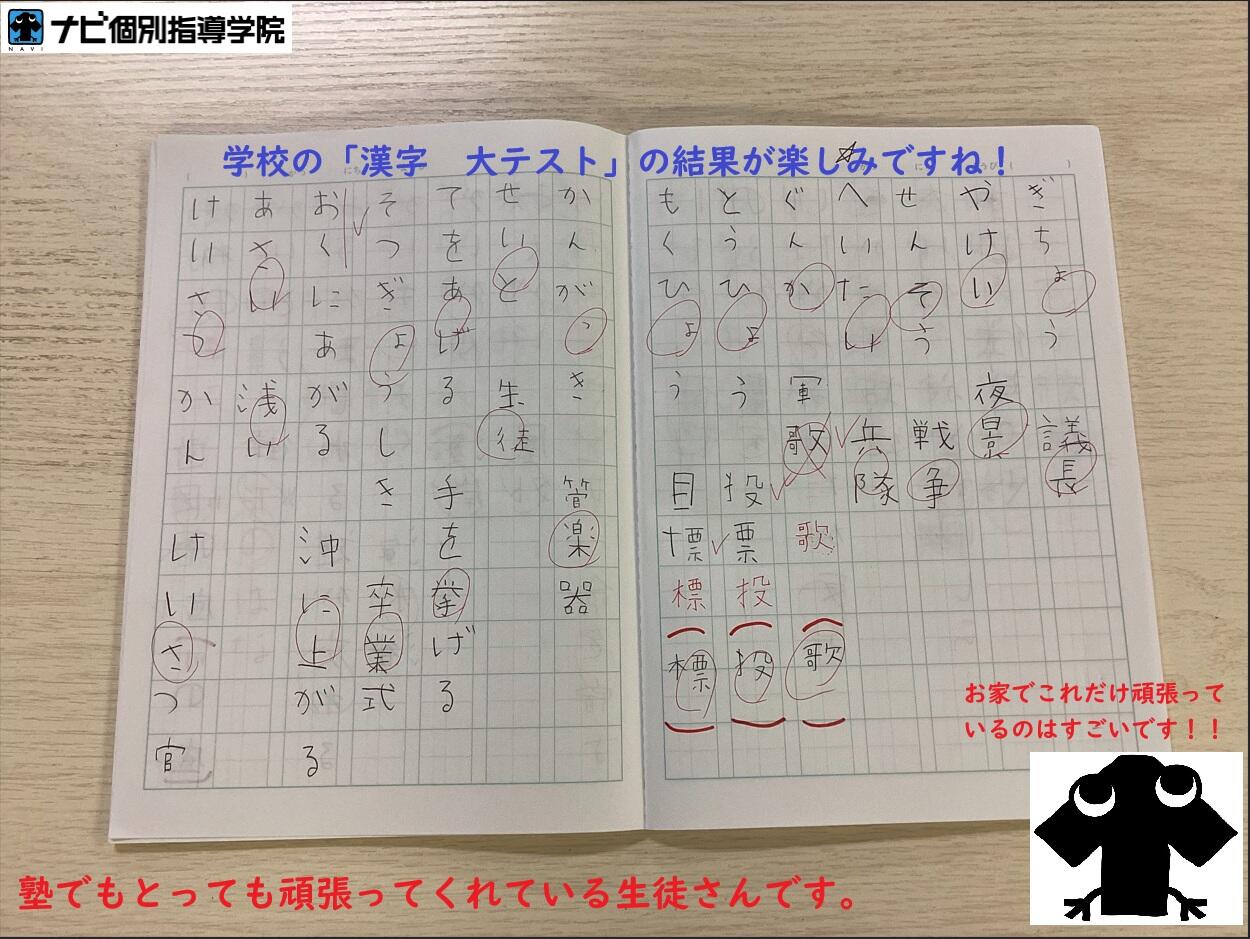 ナビ個別指導学院
NAVI
学校の「漢字　大テスト」の結果が楽しみですね！
ぎちょう
議長
やけい
夜景
せんそう
戦争
へいたい
兵隊
ぐんか
軍歌
歌
歌
とうひょう
投票
投
投
もくひょう
目標
標
標
かんがっき
管楽器
せいと
生徒
てをあげる
手を挙げる
そつぎょうしき
卒業式
おくにあがる
沖に上がる
あさい
浅い
けいさつかん
けいさつ官
お家でこれだけ頑張って
いるのはすごいです！！
塾でもとっても頑張ってくれている生徒さんです。